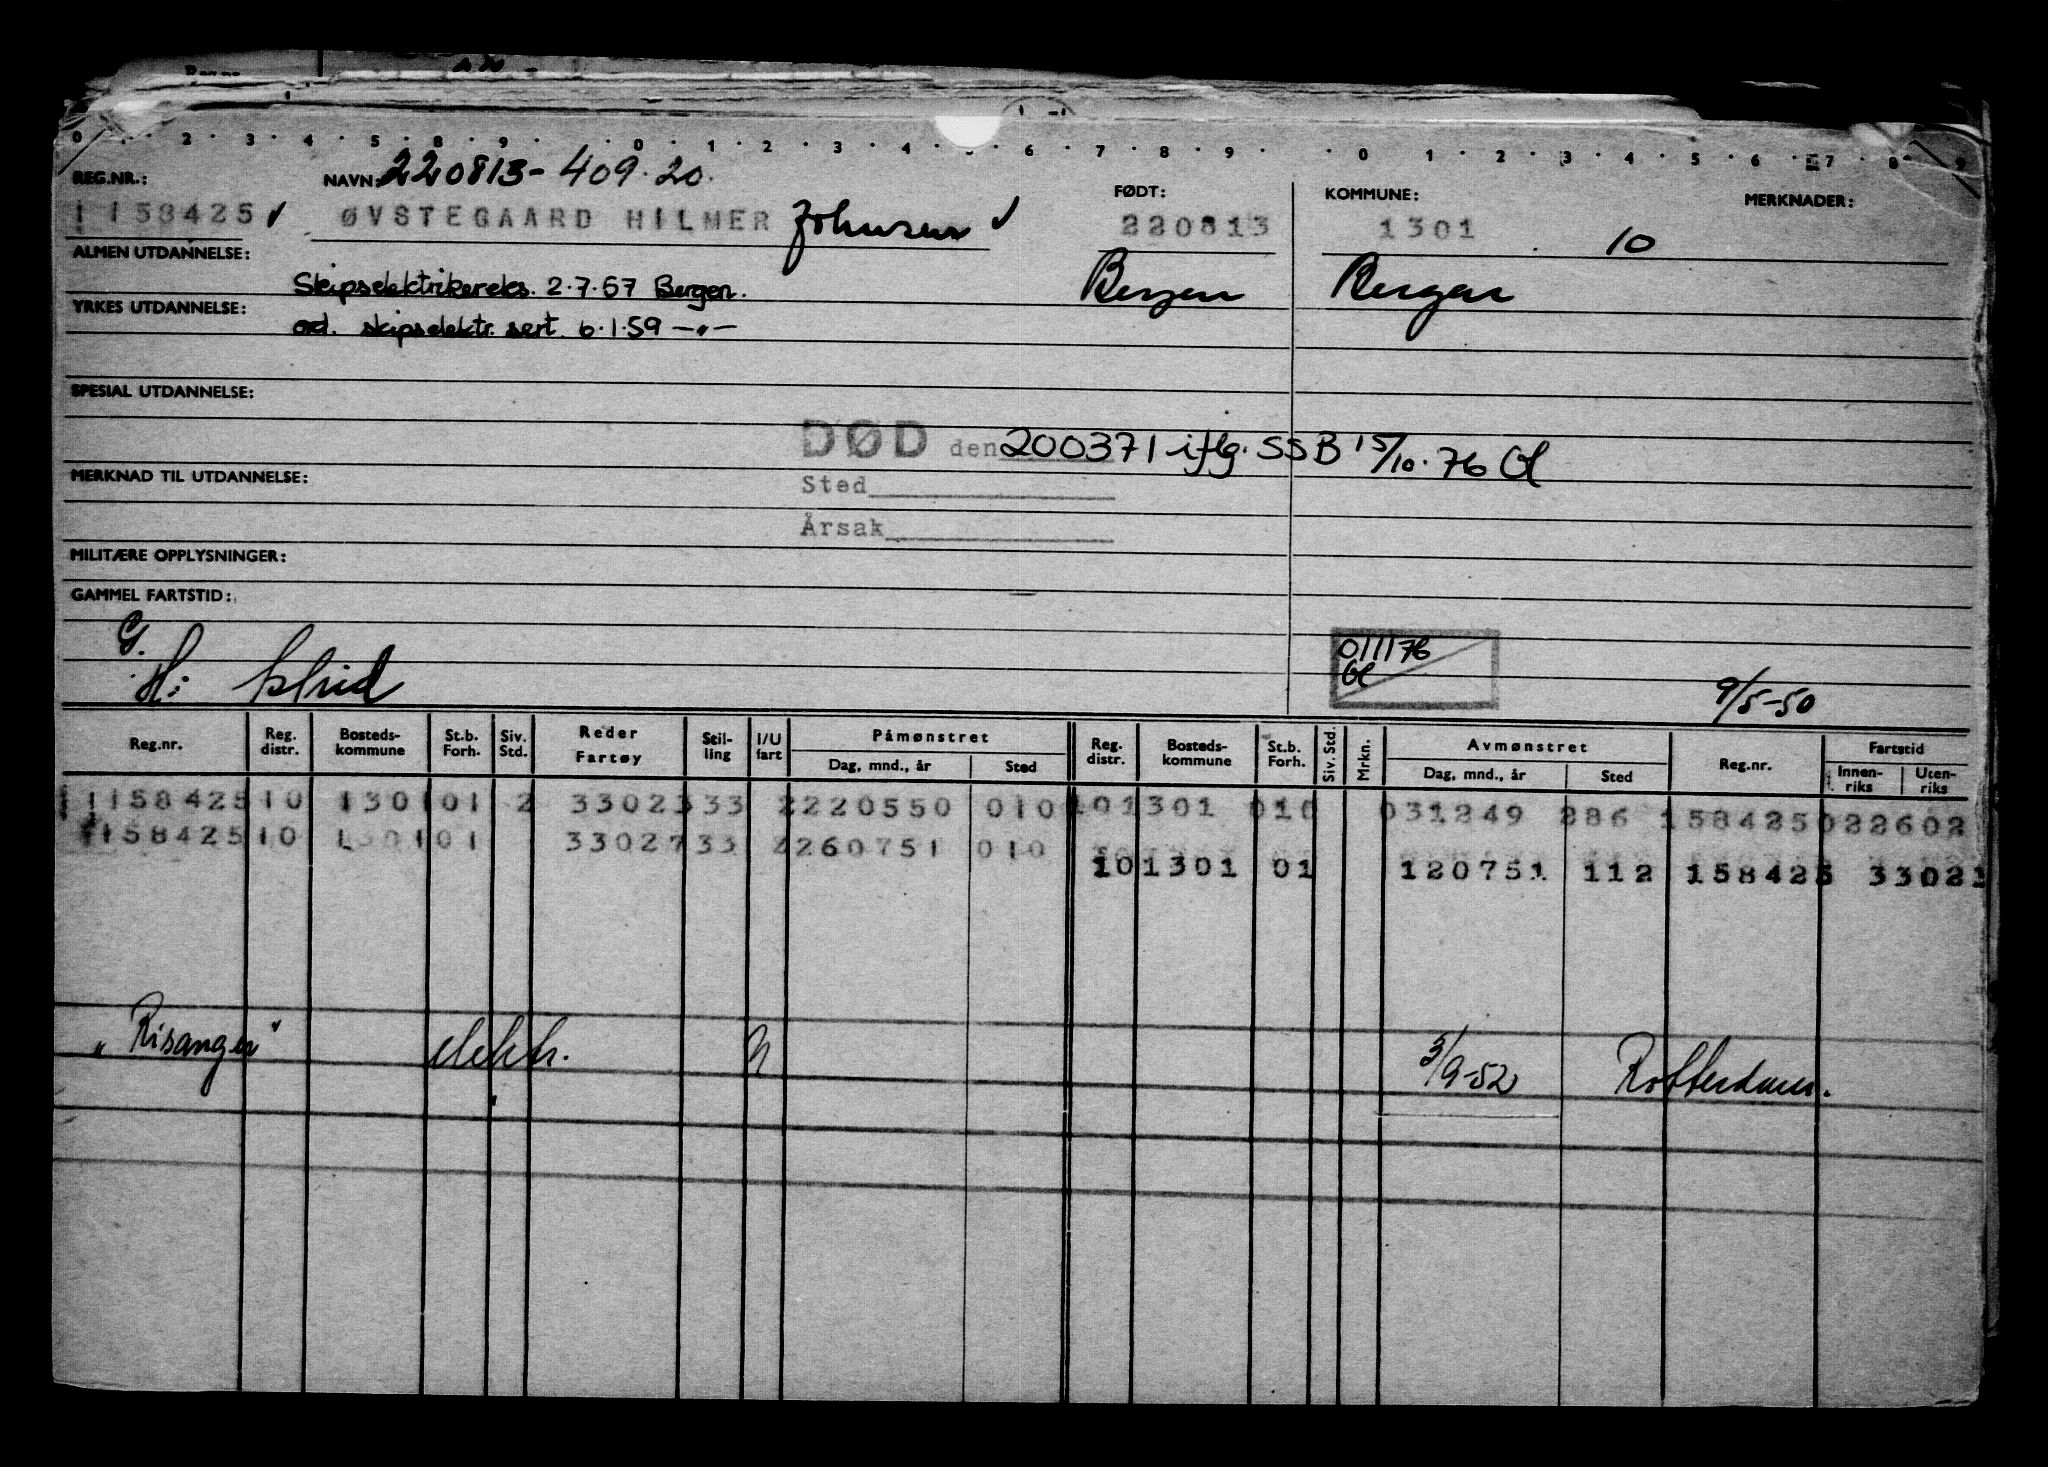 0 . . 2 . 3 . 4 . 5 . 8 . 9 . . 0 . 1 . 2 . 3 . 4 . . 6 . 7 . 8 . 9 . . 0 . 1 . 2 . 3 . 4 . 5 . 6 . 7 . 8 . 9
REG.NR.: NAVN: 220813-409.20. FØDT: KOMMUNE: MERKNADER:
1158425 ✓ ØVSTEGAARD HILMER Johnsen ✓ 220813 1301 10
ALMEN UTDANNELSE:
Skipselektrikereks. 2.7.57 Bergen. Bergen Bergen
YRKES UTDANNELSE:
ord. skipselektr. sert. 6.1.59 -"-
SPESIAL UTDANNELSE:
DØD den 200371 iflg. SSB 15/10.76 Ol
MERKNAD TIL UTDANNELSE:
Sted
Årsak
MILITÆRE OPPLYSNINGER:
GAMMEL FARTSTID:
G.
011176
Ol
H: 9/5-50
Reg.nr. Reg. distr. Bosteds-kommune St.b. Forh. Siv. Std. Reder Fartøy Stil-ling I/U fart Påmønstret Dag, mnd., år Sted Reg. distr. Bosteds-kommune St.b. Forh. Siv. Std. Mrkn. Avmønstret Dag, mnd., år Sted Reg.nr. Fartstid Innen-riks Uten-riks
1158425 10 1301 01 2 33023 33 2 220550 010 10 1301 010 031249 286 158425 022602
1158425 10 1301 01 33027 33 2 260751 010
10 1301 01 120751 112 158425 33021
"Risanger" elektr. 3/9-52 Rotterdam.